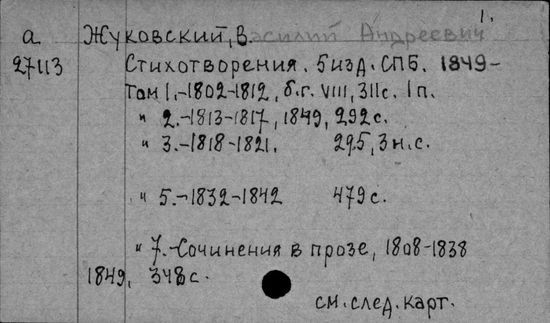 1.
а Жуковский, Василий Андреевич
27113 Стихотворения. 5 изд. СПБ. 1849-
Том 1.-1802-1812, б.г. VIII, 311с. 1 п.
" 2.-1813-1817, 1849, 292 с.
" 3.-1818-1821. 295, 3 н.с.
" 5.-1832-1842 479 с.
" 7.-Сочинения в прозе, 1808-1838
1849, 348 с.
см. след. карт.